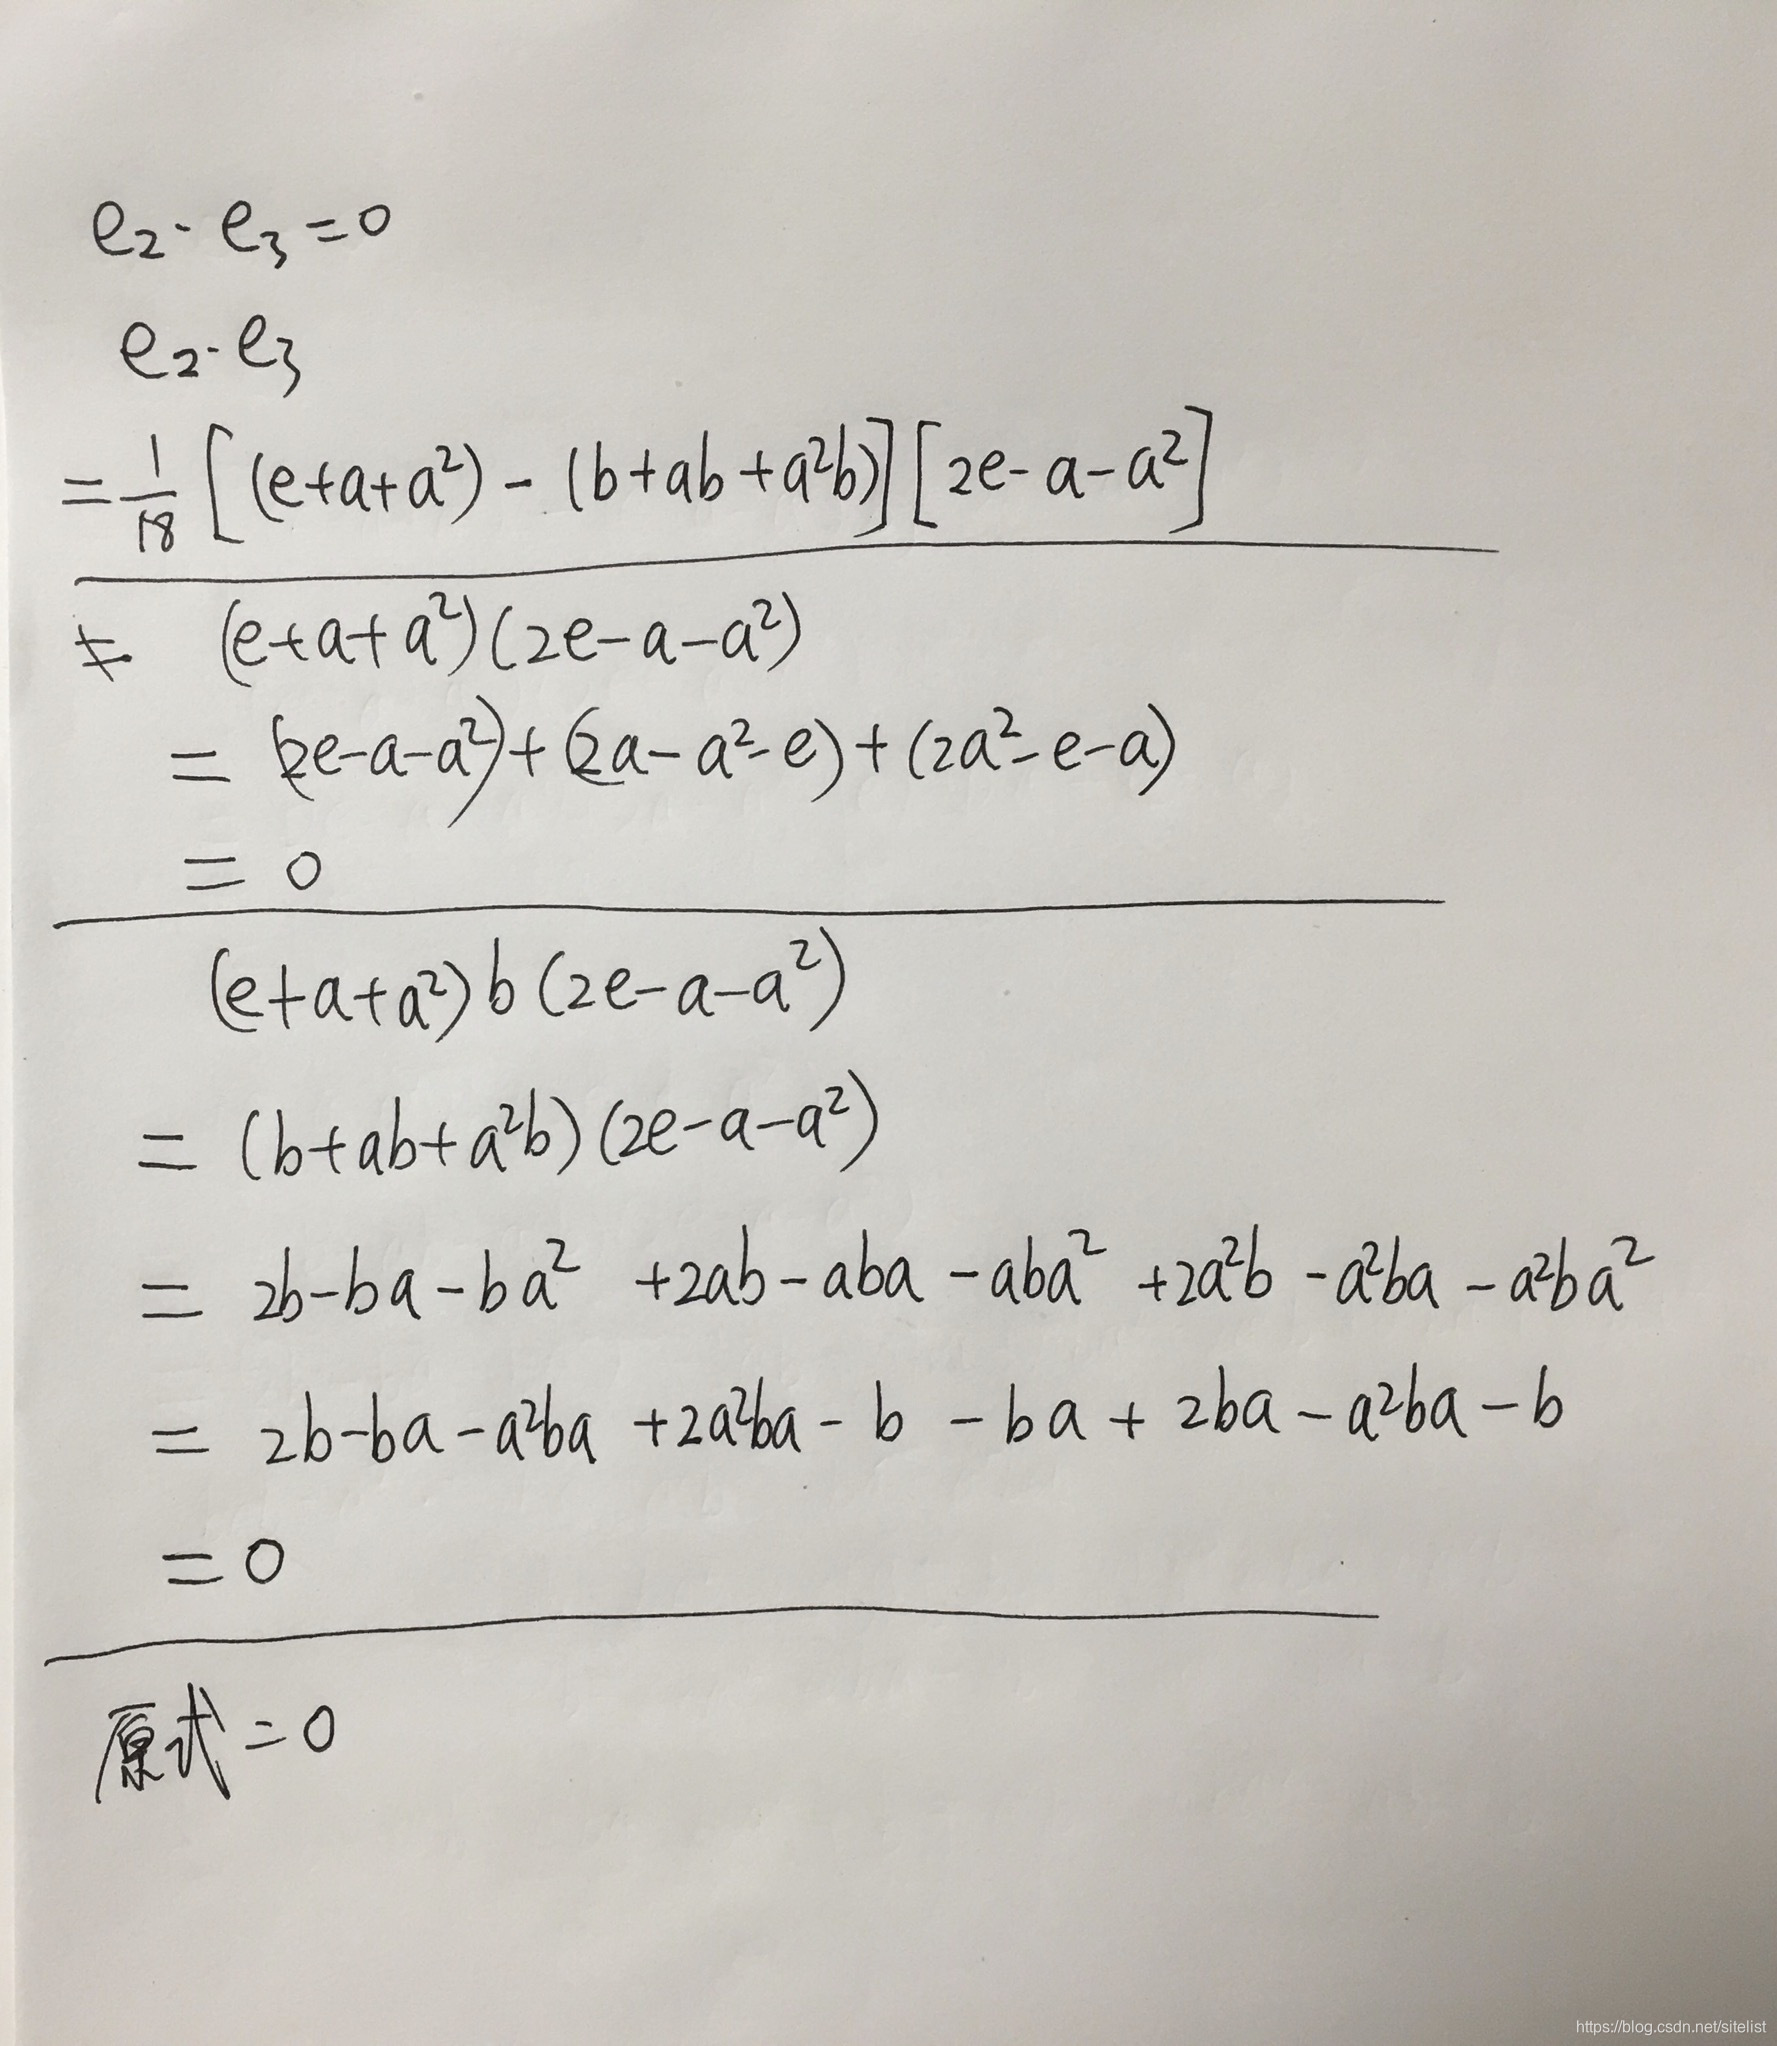 e₂·e₃=0
e₂·e₃
=1/18[(e+a+a²)-(b+ab+a²b)][2e-a-a²]
(e+a+a²)(2e-a-a²)
=(2e-a-a²)+(2a-a²-e)+(2a²-e-a)
=0
(e+a+a²)b(2e-a-a²)
=(b+ab+a²b)(2e-a-a²)
=2b-ba-ba²+2ab-aba-aba²+2a²b-a²ba-a²ba²
=2b-ba-a²ba+2a²ba-b-ba+2ba-a²ba-b
=0
原式=0
https://blog.csdn.net/sitelist